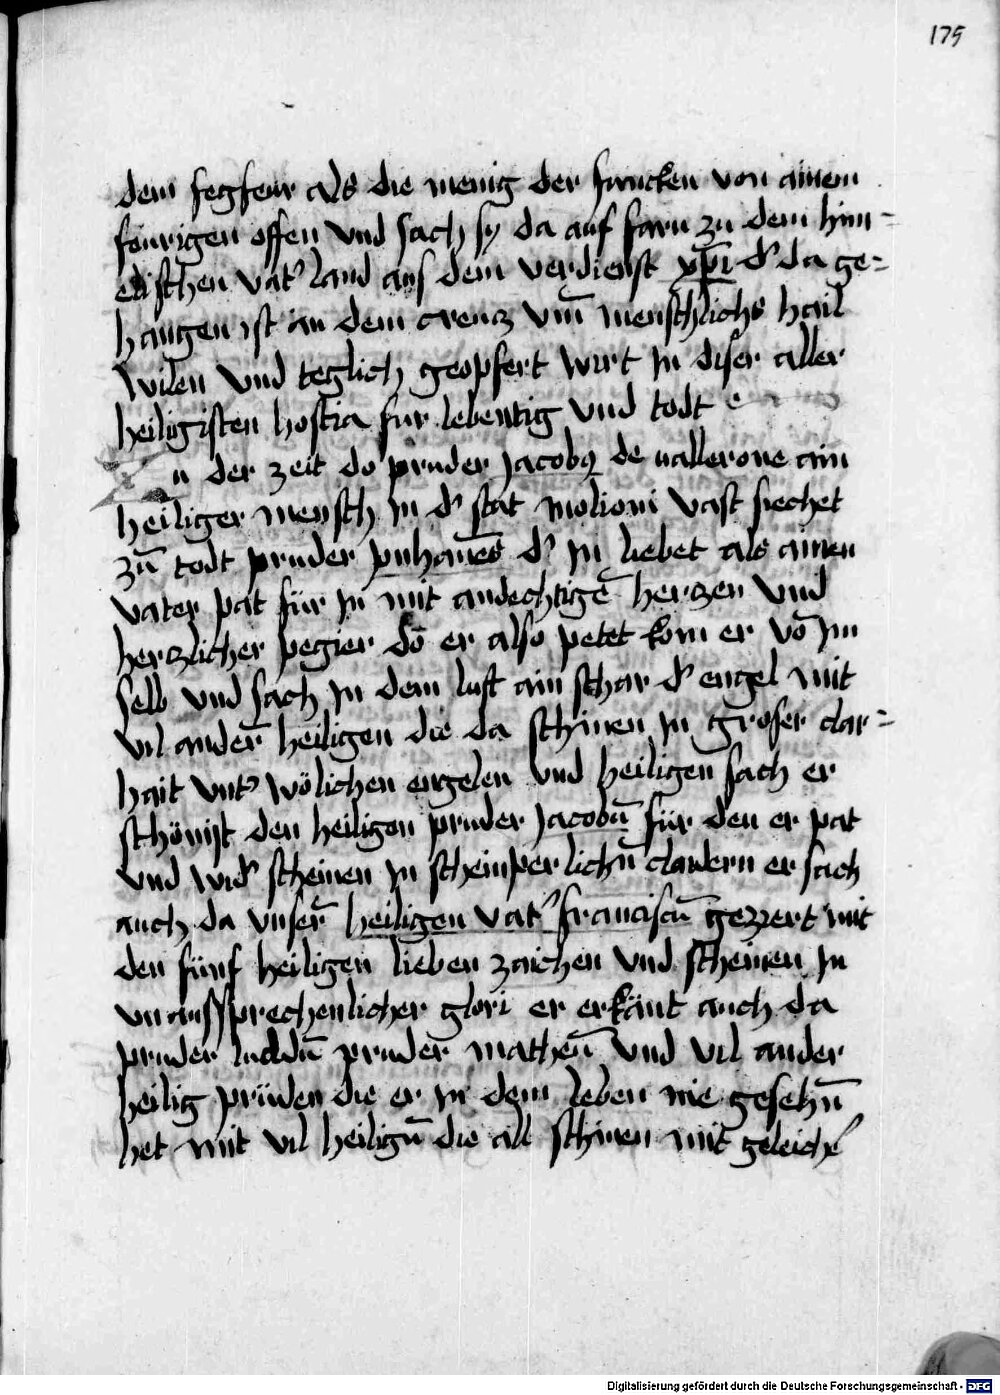 175
dem fegfeur als die menig der funcken von ainem
feurigen offen vnd sach sy da auf farn zu dem him=
elischen vat' land aus dem verdienst xp̄i d' da ge=
hangen ist an dem creucz vm̄ menschlichs hail
wilen vnd teglich geopfert wirt jn diser aller
heiligisten hostia fur lebentig vnd todt
n der zeit do pruder jacobꝯ de vallerone ain
heiliger mensch jn d' stat molioni vast siechet
zū todt pruder juhānes d' jn liebet als ainen
vater pat für jn mit andechtigē herczen vnd
herczlicher pegier do er also petet kom er vō jm
selb vnd sach jn dem luft ain schar d' engel mit
vil ander heiligen die da schinen jn groser clar=
hait vnt' wölichen engelen vnd heiligen sach er
schönist den heiligen pruder jacobū für den er pat
vnd wid' scheinen jn scheinperlichū claidern er sach
auch da vnserñ heiligen vat' franciscū geziert mit
den fünf heiligen lieben zaichen vnd scheinen jn
vnaussprechenlicher glori er erkant auch da
pruder lucidū pruder matheū vnd vil ander
heilig prüder die er jn dem leben nie gesehū
het mit vil heiligū die all schinen mit geleichē
Digitalisierung gefördert durch die Deutsche Forschungsgemeinschaft - DFG